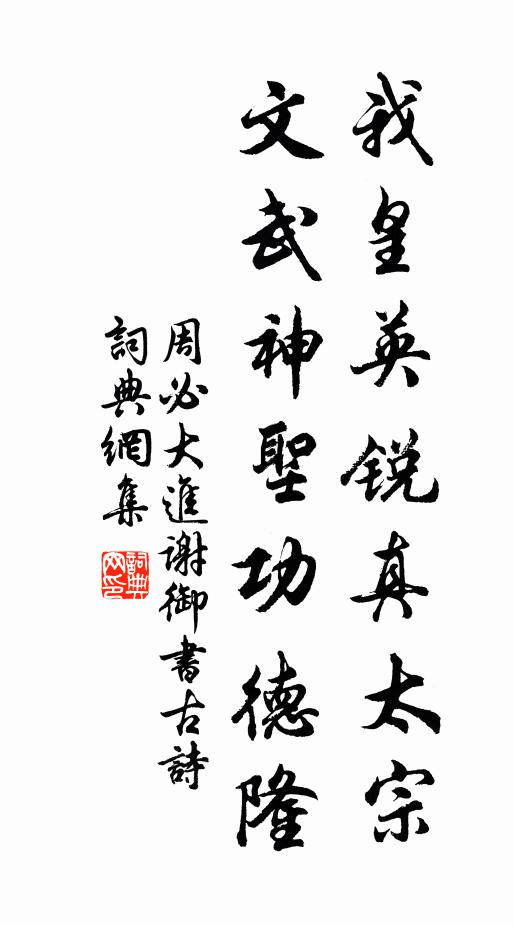 我皇英锐真太宗
文武神聖功德隆
周必大進謝御書古詩
詞典網集
詞典网印